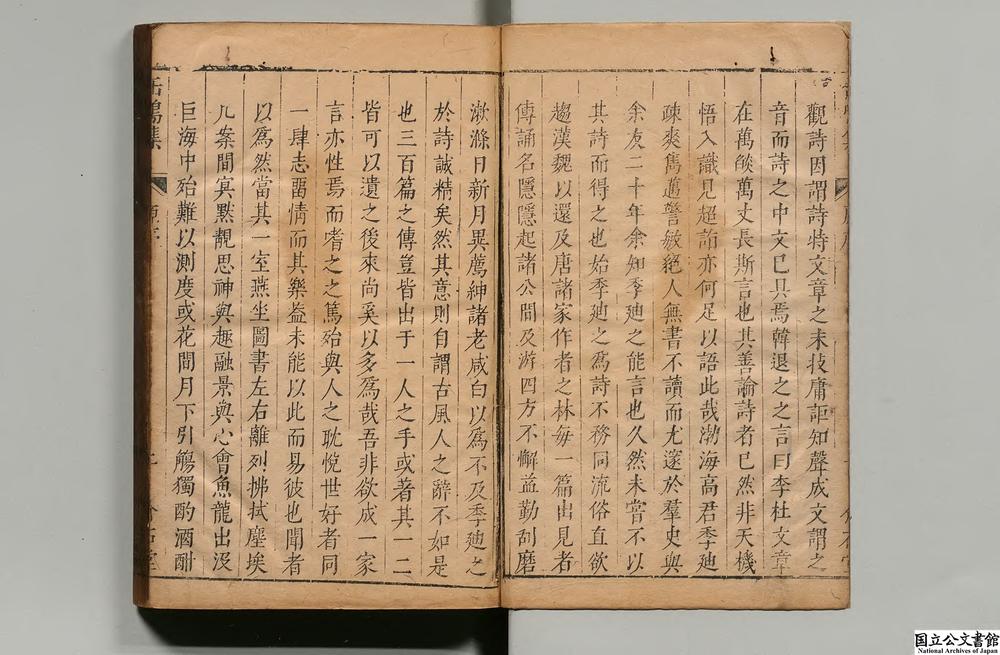 觀詩因謂詩特文章之末技庸詎知聲成文謂之
音而詩之中文已具焉韓退之之言曰李杜文章
在萬燄萬丈長斯言也其善論詩者已然非天機
悟入識見超詣亦何足以語此哉渤海高君季廸
疎爽雋邁警敏絕人無書不讀而尤邃於羣史與
余友二十年余知季廸之能言也久然未嘗不以
其詩而得之也始季廸之爲詩不務同流俗直欲
趨漢魏以還及唐諸家作者之林每一篇出見者
傳誦名隱隱起諸公間及游四方不懈益勤刮磨
漱滌日新月異薦紳諸老咸白以爲不及季廸之
於詩誠精矣然其意則自謂古風人之辭不如是
也三百篇之傳豈皆出于一人之手或著其一二
皆可以遺之後來尚奚以多爲哉吾非欲成一家
言亦性焉而嗜之之篤殆與人之耽悅世好者同
一肆志畱情而其樂益未能以此而易彼也聞者
以爲然當其一室燕坐圖書左右離列拂拭塵埃
几案間寘默靚思神與趣融景與心會魚龍出沒
巨海中殆難以測度或花間月下引觴獨酌酒酣
缶鳴集
原序
国立公文書館
National Archives of Japan